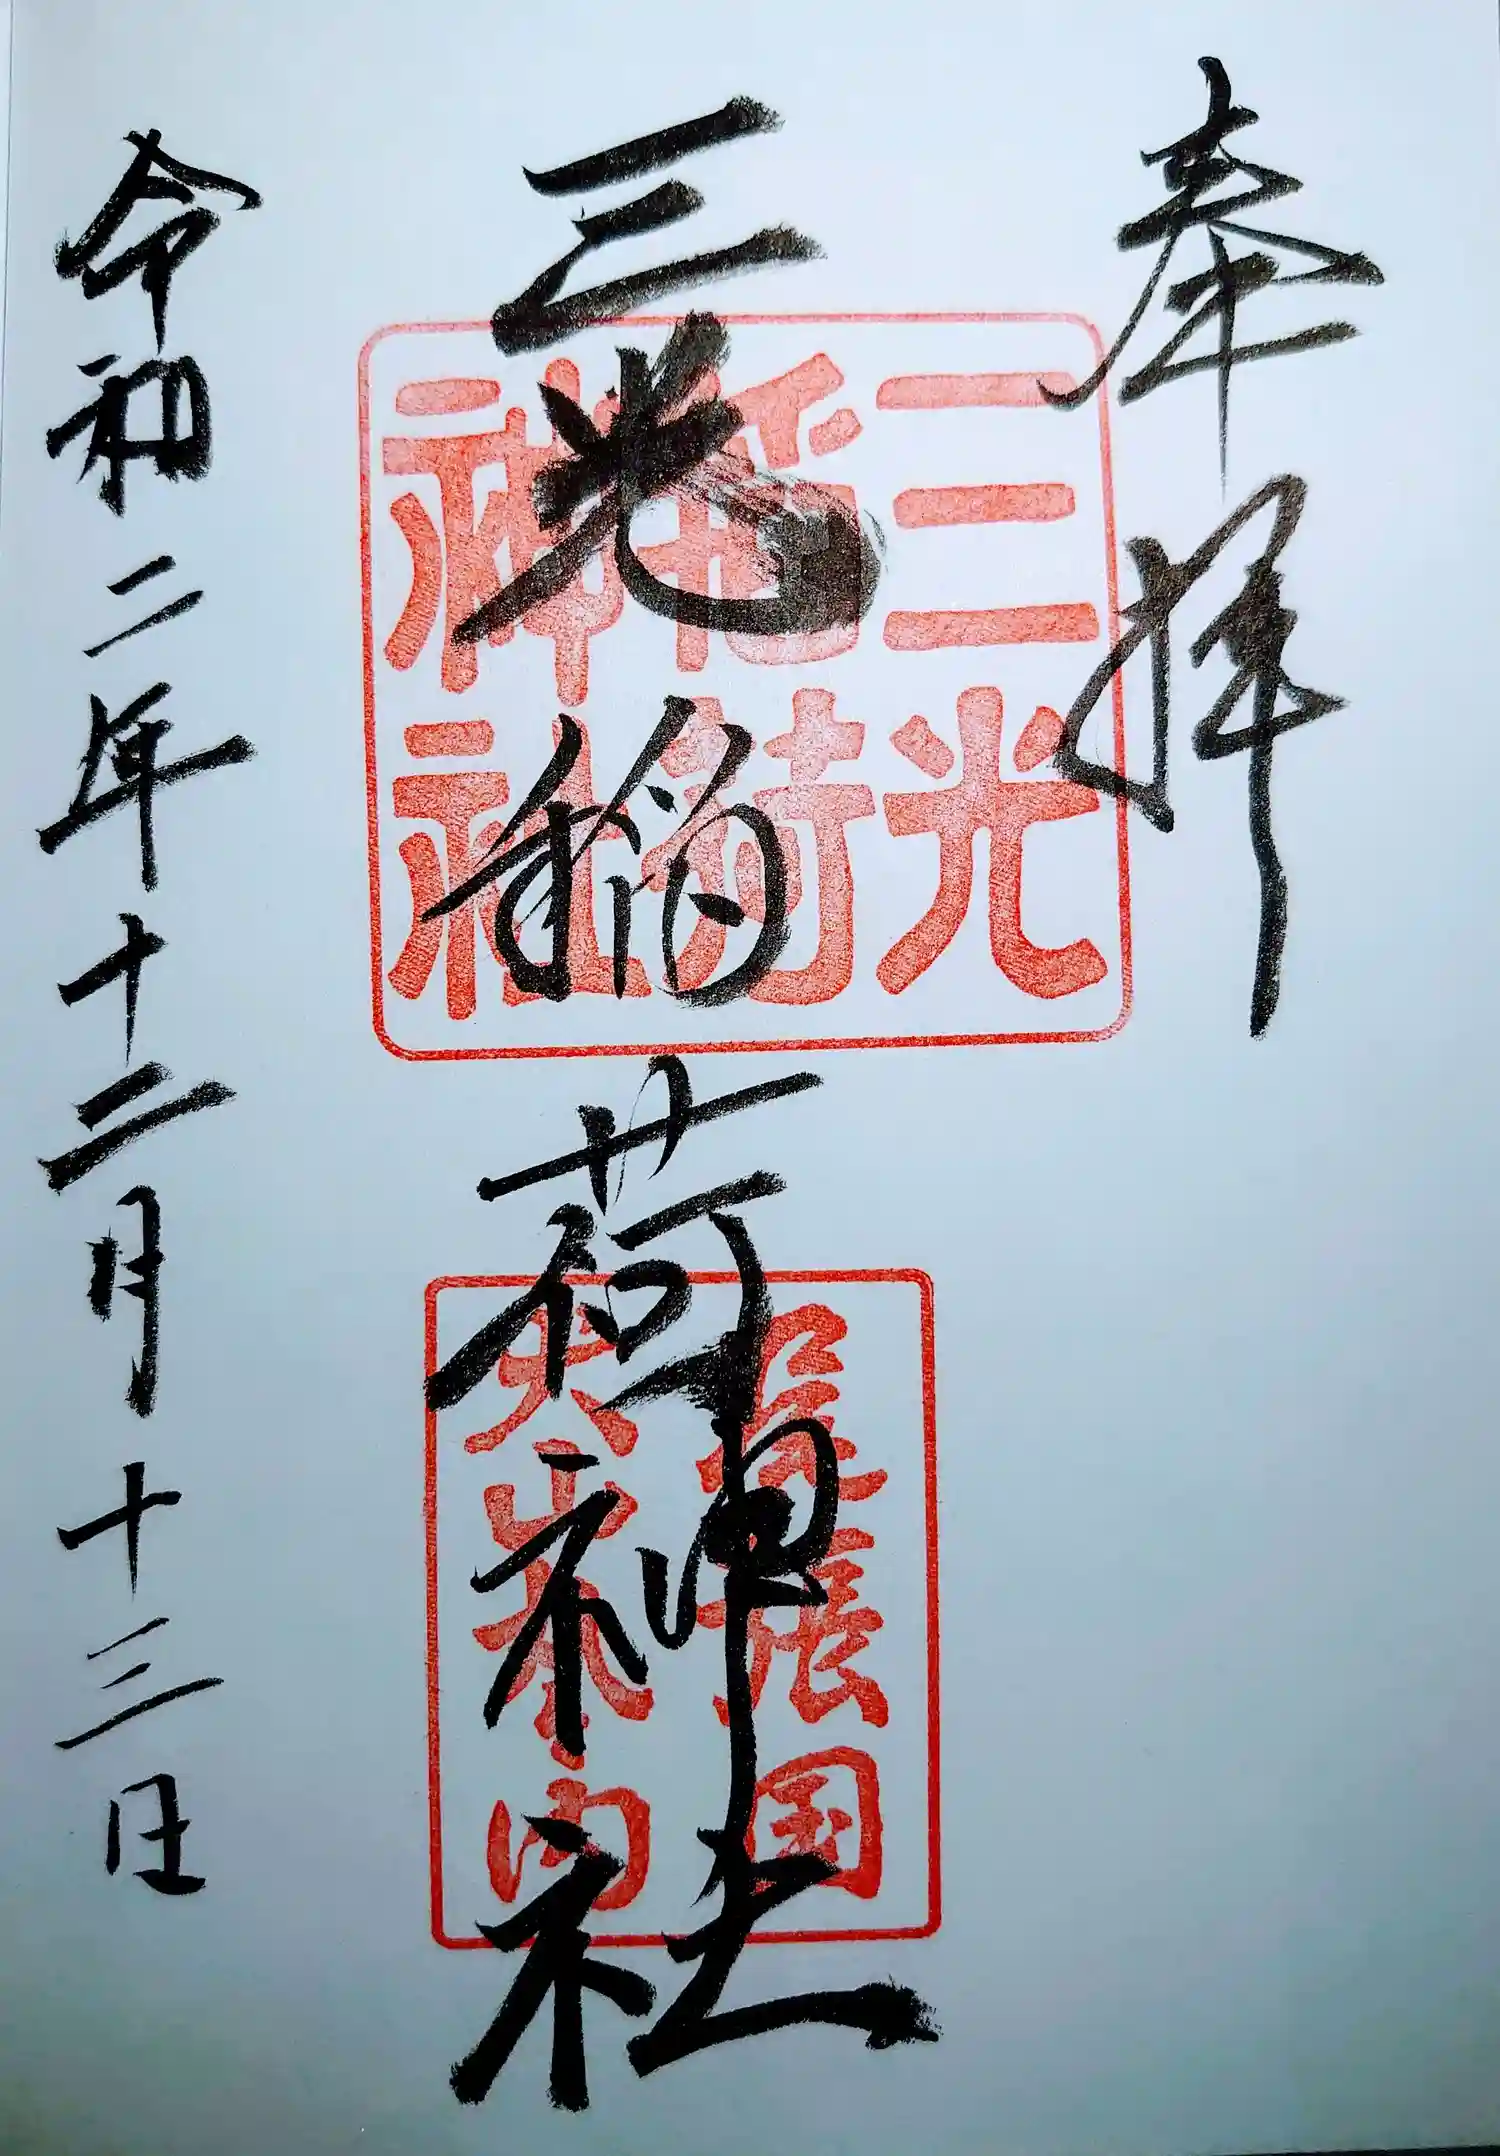 奉拝
三光稲荷神社
三光
稲荷
神社
尾張国
犬山城内
令和二年十二月十三日